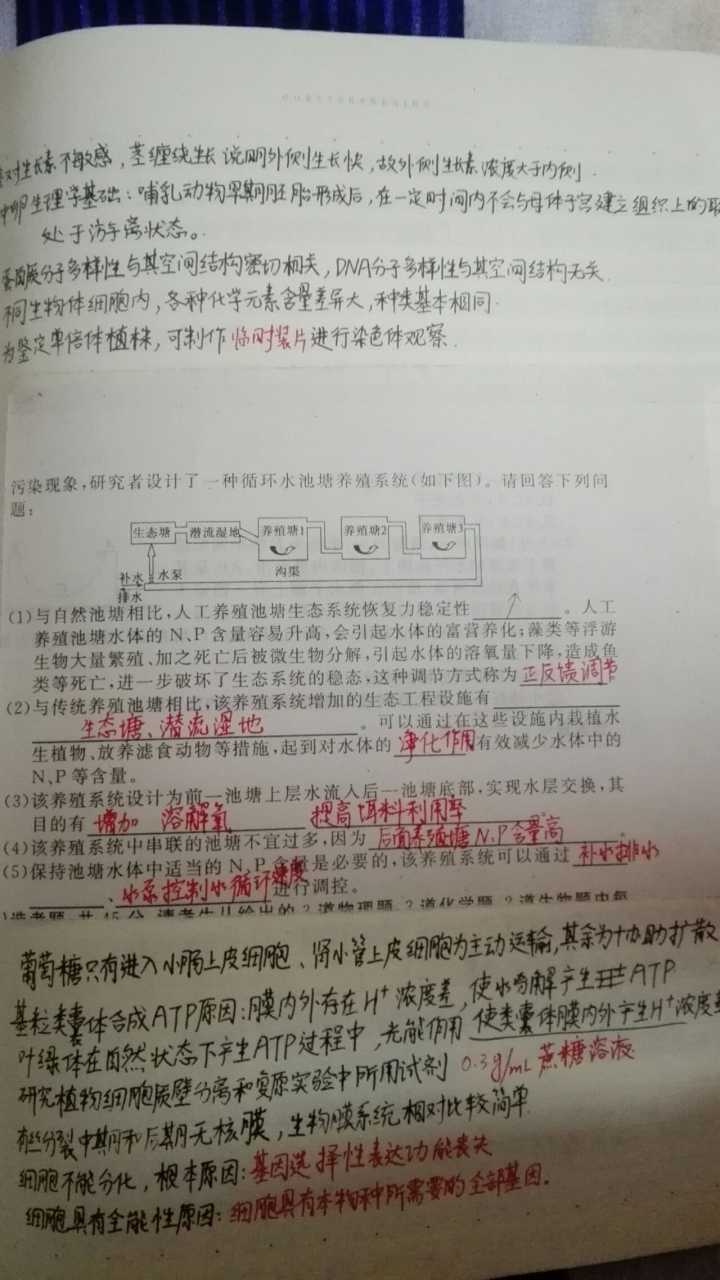 对生长素不敏感，茎缠绕生长说明外侧生长快，故外侧生长素浓度大于内侧.
生理学基础：哺乳动物早期胚胎形成后，在一定时间内不会与母体子宫建立组织上的联
处于游离状态。
蛋白质分子多样性与其空间结构密切相关，DNA分子多样性与其空间结构无关.
不同生物体细胞内，各种化学元素含量差异大，种类基本相同.
为鉴定单倍体植株，可制作临时装片进行染色体观察.
污染现象,研究者设计了一种循环水池塘养殖系统(如下图)。请回答下列问
题:
生态塘 潜流湿地 养殖塘1 养殖塘2 养殖塘3
补水 水泵 沟渠
排水
(1)与自然池塘相比,人工养殖池塘生态系统恢复力稳定性 ↗ 。人工
养殖池塘水体的N、P含量容易升高,会引起水体的富营养化;藻类等浮游
生物大量繁殖、加之死亡后被微生物分解,引起水体的溶氧量下降,造成鱼
类等死亡,进一步破坏了生态系统的稳态,这种调节方式称为 正反馈调节
(2)与传统养殖池塘相比,该养殖系统增加的生态工程设施有
生态塘、潜流湿地 。可以通过在这些设施内栽植水
生植物、放养滤食动物等措施,起到对水体的 净化作用 有效减少水体中的
N、P等含量。
(3)该养殖系统设计为前一池塘上层水流入后一池塘底部,实现水层交换,其
目的有 增加溶解氧 提高饵料利用率
(4)该养殖系统中串联的池塘不宜过多,因为 后面养殖塘N.P含量高 。
(5)保持池塘水体中适当的N、P含量是必要的,该养殖系统可以通过 补水排水
、水泵控制水循环速度 进行调控。
葡萄糖只有进入小肠上皮细胞、肾小管上皮细胞为主动运输，其余为协助扩散
基粒类囊体合成ATP原因：膜内外存在H⁺浓度差，使水解产生ATP
叶绿体在自然状态下产生ATP过程中，光能作用 使类囊体膜内外产生H⁺浓度差
研究植物细胞质壁分离和复原实验中所用试剂 0.3g/mL蔗糖溶液
有丝分裂中期和后期无核膜，生物膜系统相对比较简单.
细胞不能分化，根本原因：基因选择性表达功能丧失
细胞具有全能性原因：细胞具有本物种所需要的全部基因.